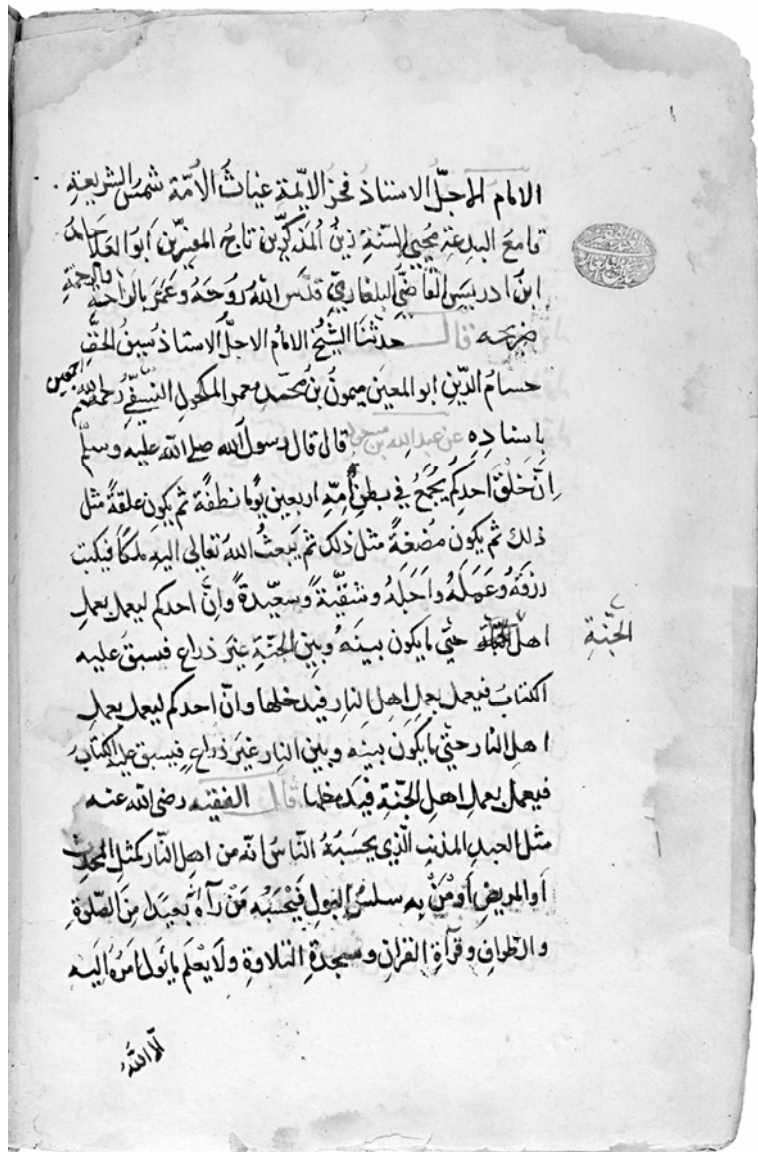 الامام الاجلّ الاستاذ فخر الايمّة غياث الامّة شمس الشريعة
قامع البدعة محيي السنّة زين المذكّرين تاج المفسّرين ابو العلا حامد
ابن ادريس القاضي البلغاري قدّس الله روحه وعمّر بالراحة والرحمة
ضريحه قال حدثنا الشيخ الامام الاجلّ الاستاذ سيف الحق
حسام الدّين ابو المعين ميمون بن محمّد بن معمر المكحول النّسفيّ رحمهم الله اجمعين
باسناده عن عبد الله بن مسعود قال قال رسول الله صلى الله عليه وسلّم
انّ خلق احدكم يجمع في بطن امّه اربعين يوما نطفة ثم يكون علقة مثل
ذلك ثم يكون مضغة مثل ذلك ثم يبعث الله تعالى اليه ملكا فيكتب
رزقه وعمله واجله وشقيّة وسعيدة وانّ احدكم ليعمل بعمل
اهل الجنّة حتّى ما يكون بينه وبين الجنّة غير ذراع فسبق عليه
الجنّة
الكتاب فيعمل بعمل اهل النار فيدخلها وانّ احدكم ليعمل بعمل
اهل النار حتّى ما يكون بينه وبين النار غير ذراع فيسبق عليه الكتاب
فيعمل بعمل اهل الجنّة فيدخلها قال الفقيه رضى الله عنه
مثل العبد المذنب الّذي يحسبه النّاس انّه من اهل النّار كمثل المحدث
او المريض او من به سلس البول فيحسبه من رآه بعيدا من الصّلوة
والطواف وقرآة القران وسجدة التلاوة ولا يعلم ما يؤل امره اليه
الّا الله